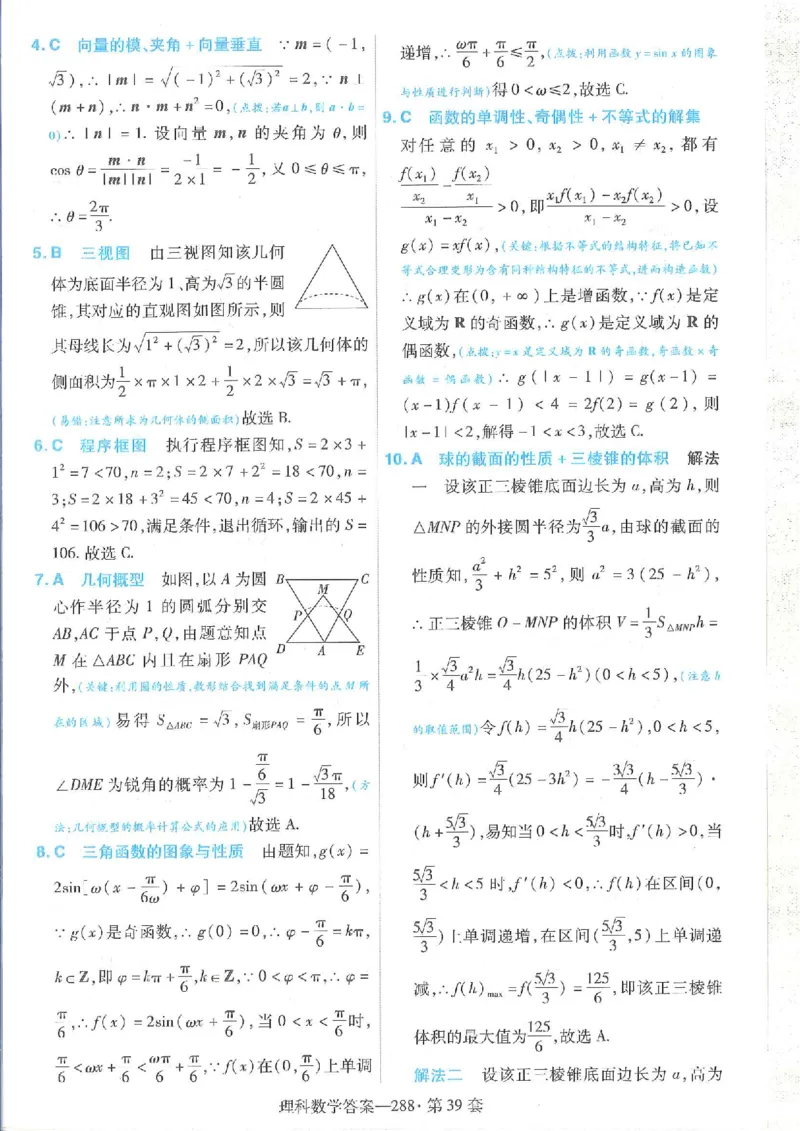 4.C 向量的模、夹角+向量垂直 ∵m=(-1,
√3),∴|m|=√((-1)²+(√3)²)=2,∵n⊥
(m+n),∴n·m+n²=0,(点拨:若a⊥b,则a·b=
0)∴|n|=1.设向量m,n的夹角为θ,则
cosθ=m·n/(|m||n|)=-1/(2×1)=-1/2,又0≤θ≤π,
∴θ=2π/3.
5.B 三视图 由三视图知该几何
体为底面半径为1、高为√3的半圆
锥,其对应的直观图如图所示,则
其母线长为√(1²+(√3)²)=2,所以该几何体的
侧面积为1/2×π×1×2+1/2×2×√3=√3+π,
(易错:注意所求为几何体的侧面积)故选B.
6.C 程序框图 执行程序框图知,S=2×3+
1²=7<70,n=2;S=2×7+2²=18<70,n=
3;S=2×18+3²=45<70,n=4;S=2×45+
4²=106>70,满足条件,退出循环,输出的S=
106.故选C.
7.A 几何概型 如图,以A为圆
心作半径为1的圆弧分别交
AB,AC于点P,Q,由题意知点
M在△ABC内且在扇形PAQ
B C M P Q D A E
外,(关键:利用圆的性质,数形结合找到满足条件的点M所
在的区域)易得S△ABC=√3,S扇形PAQ=π/6,所以
∠DME为锐角的概率为1-(π/6)/√3=1-√3π/18,(方
法:几何概型的概率计算公式的应用)故选A.
8.C 三角函数的图象与性质 由题知,g(x)=
2sin[ω(x-π/6ω)+φ]=2sin(ωx+φ-π/6),
∵g(x)是奇函数,∴g(0)=0,∴φ-π/6=kπ,
k∈Z,即φ=kπ+π/6,k∈Z,∵0<φ<π,∴φ=
π/6,∴f(x)=2sin(ωx+π/6),当0<x<π/6时,
π/6<ωx+π/6<ωπ/6+π/6,∵f(x)在(0,π/6)上单调
递增,∴ωπ/6+π/6≤π/2,(点拨:利用函数y=sin x的图象
与性质进行判断)得0<ω≤2,故选C.
9.C 函数的单调性、奇偶性+不等式的解集
对任意的x₁>0,x₂>0,x₁≠x₂,都有
(f(x₁)/x₂-f(x₂)/x₁)/(x₁-x₂)>0,即(x₁f(x₁)-x₂f(x₂))/(x₁-x₂)>0,设
g(x)=xf(x),(关键:根据不等式的结构特征,将已知不
等式合理变形为含有同种结构特征的不等式,进而构造函数)
∴g(x)在(0,+∞)上是增函数,∵f(x)是定
义域为R的奇函数,∴g(x)是定义域为R的
偶函数,(点拨:y=x是定义域为R的奇函数,奇函数×奇
函数=偶函数)∴g(|x-1|)=g(x-1)=
(x-1)f(x-1)<4=2f(2)=g(2),则
|x-1|<2,解得-1<x<3,故选C.
10.A 球的截面的性质+三棱锥的体积 解法
一 设该正三棱锥底面边长为a,高为h,则
△MNP的外接圆半径为√3/3a,由球的截面的
性质知,a²/3+h²=5²,则a²=3(25-h²),
∴正三棱锥O-MNP的体积V=1/3S△MNPh=
1/3×√3/4a²h=√3/4h(25-h²)(0<h<5),(注意h
的取值范围)令f(h)=√3/4h(25-h²),0<h<5,
则f′(h)=√3/4(25-3h²)=-3√3/4(h-5√3/3)·
(h+5√3/3),易知当0<h<5√3/3时,f′(h)>0,当
5√3/3<h<5时,f′(h)<0,∴f(h)在区间(0,
5√3/3)上单调递增,在区间(5√3/3,5)上单调递
减,∴f(h)max=f(5√3/3)=125/6,即该正三棱锥
体积的最大值为125/6,故选A.
解法二 设该正三棱锥底面边长为a,高为
理科数学答案—288·第39套